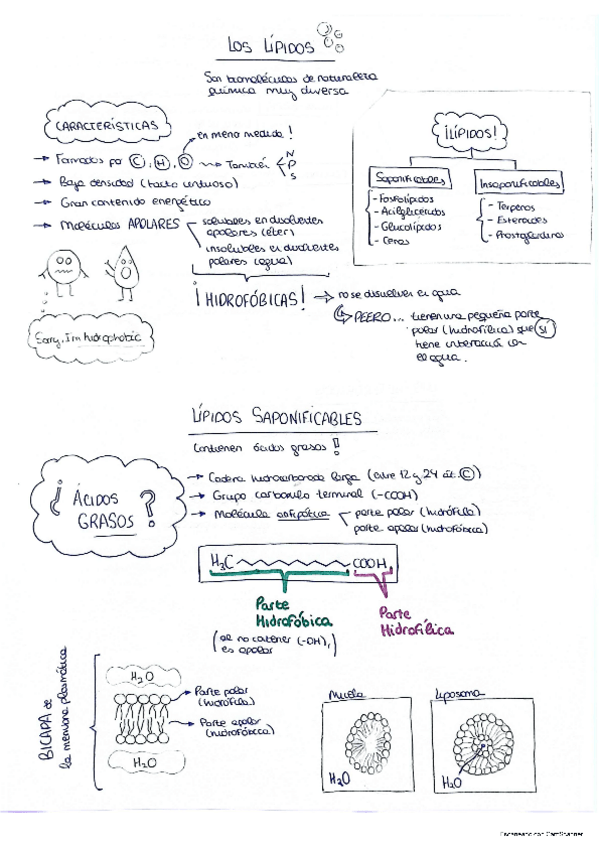 LOS LÍPIDOS
Son biomoléculas de naturaleza
química muy diversa
CARACTERÍSTICAS
en menor medida!
→ Formados por C, H, O → También N P S
→ Baja densidad (tacto untuoso)
→ Gran contenido energético
→ Moléculas APOLARES
solubles en disolventes
apolares (éter)
insolubles en disolventes
polares (agua)
¡LÍPIDOS!
Saponificables
- Fosfolípidos
- Acilglicéridos
- Glucolípidos
- Ceras
Insaponificables
- Terpenos
- Esteroides
- Prostaglandinas
Sorry, I'm hidrophobic
¡HIDROFÓBICAS! → no se disuelven en agua
PEERO... tienen una pequeña parte
polar (hidrofílica) que SÍ
tiene interacción con
el agua.
LÍPIDOS SAPONIFICABLES
Contienen ácidos grasos!
¿ÁCIDOS
GRASOS?
→ Cadena hidrocarbonada larga (entre 12 y 24 át. C)
→ Grupo carboxilo terminal (-COOH)
→ Molécula anfipática
parte polar (hidrófila)
parte apolar (hidrofóbica)
H₃C COOH
Parte
Hidrofóbica
(al no contener (-OH),
es apolar
Parte
Hidrofílica
BICAPA de
la membrana plasmática
H₂O
Parte polar
(hidrófila)
Parte apolar
(hidrofóbica)
H₂O
Micela
H₂O
Liposoma
H₂O
Escaneado con CamScanner